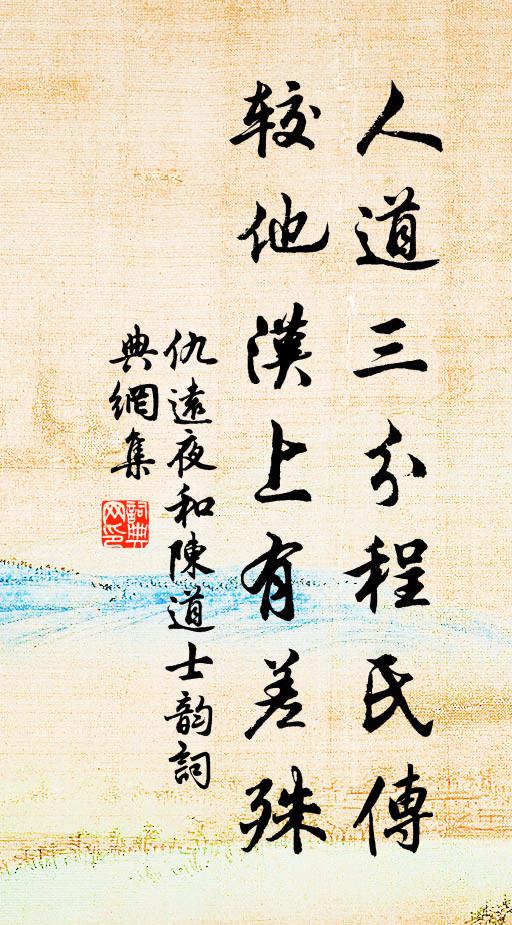 人道三分程氏傳
较他漢上有差殊
仇遠夜和陳道士韵詞
典網集
詞典
网印